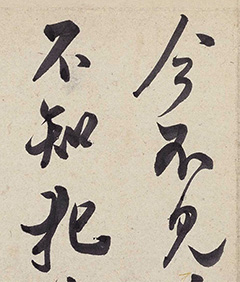 今不見
不知犯